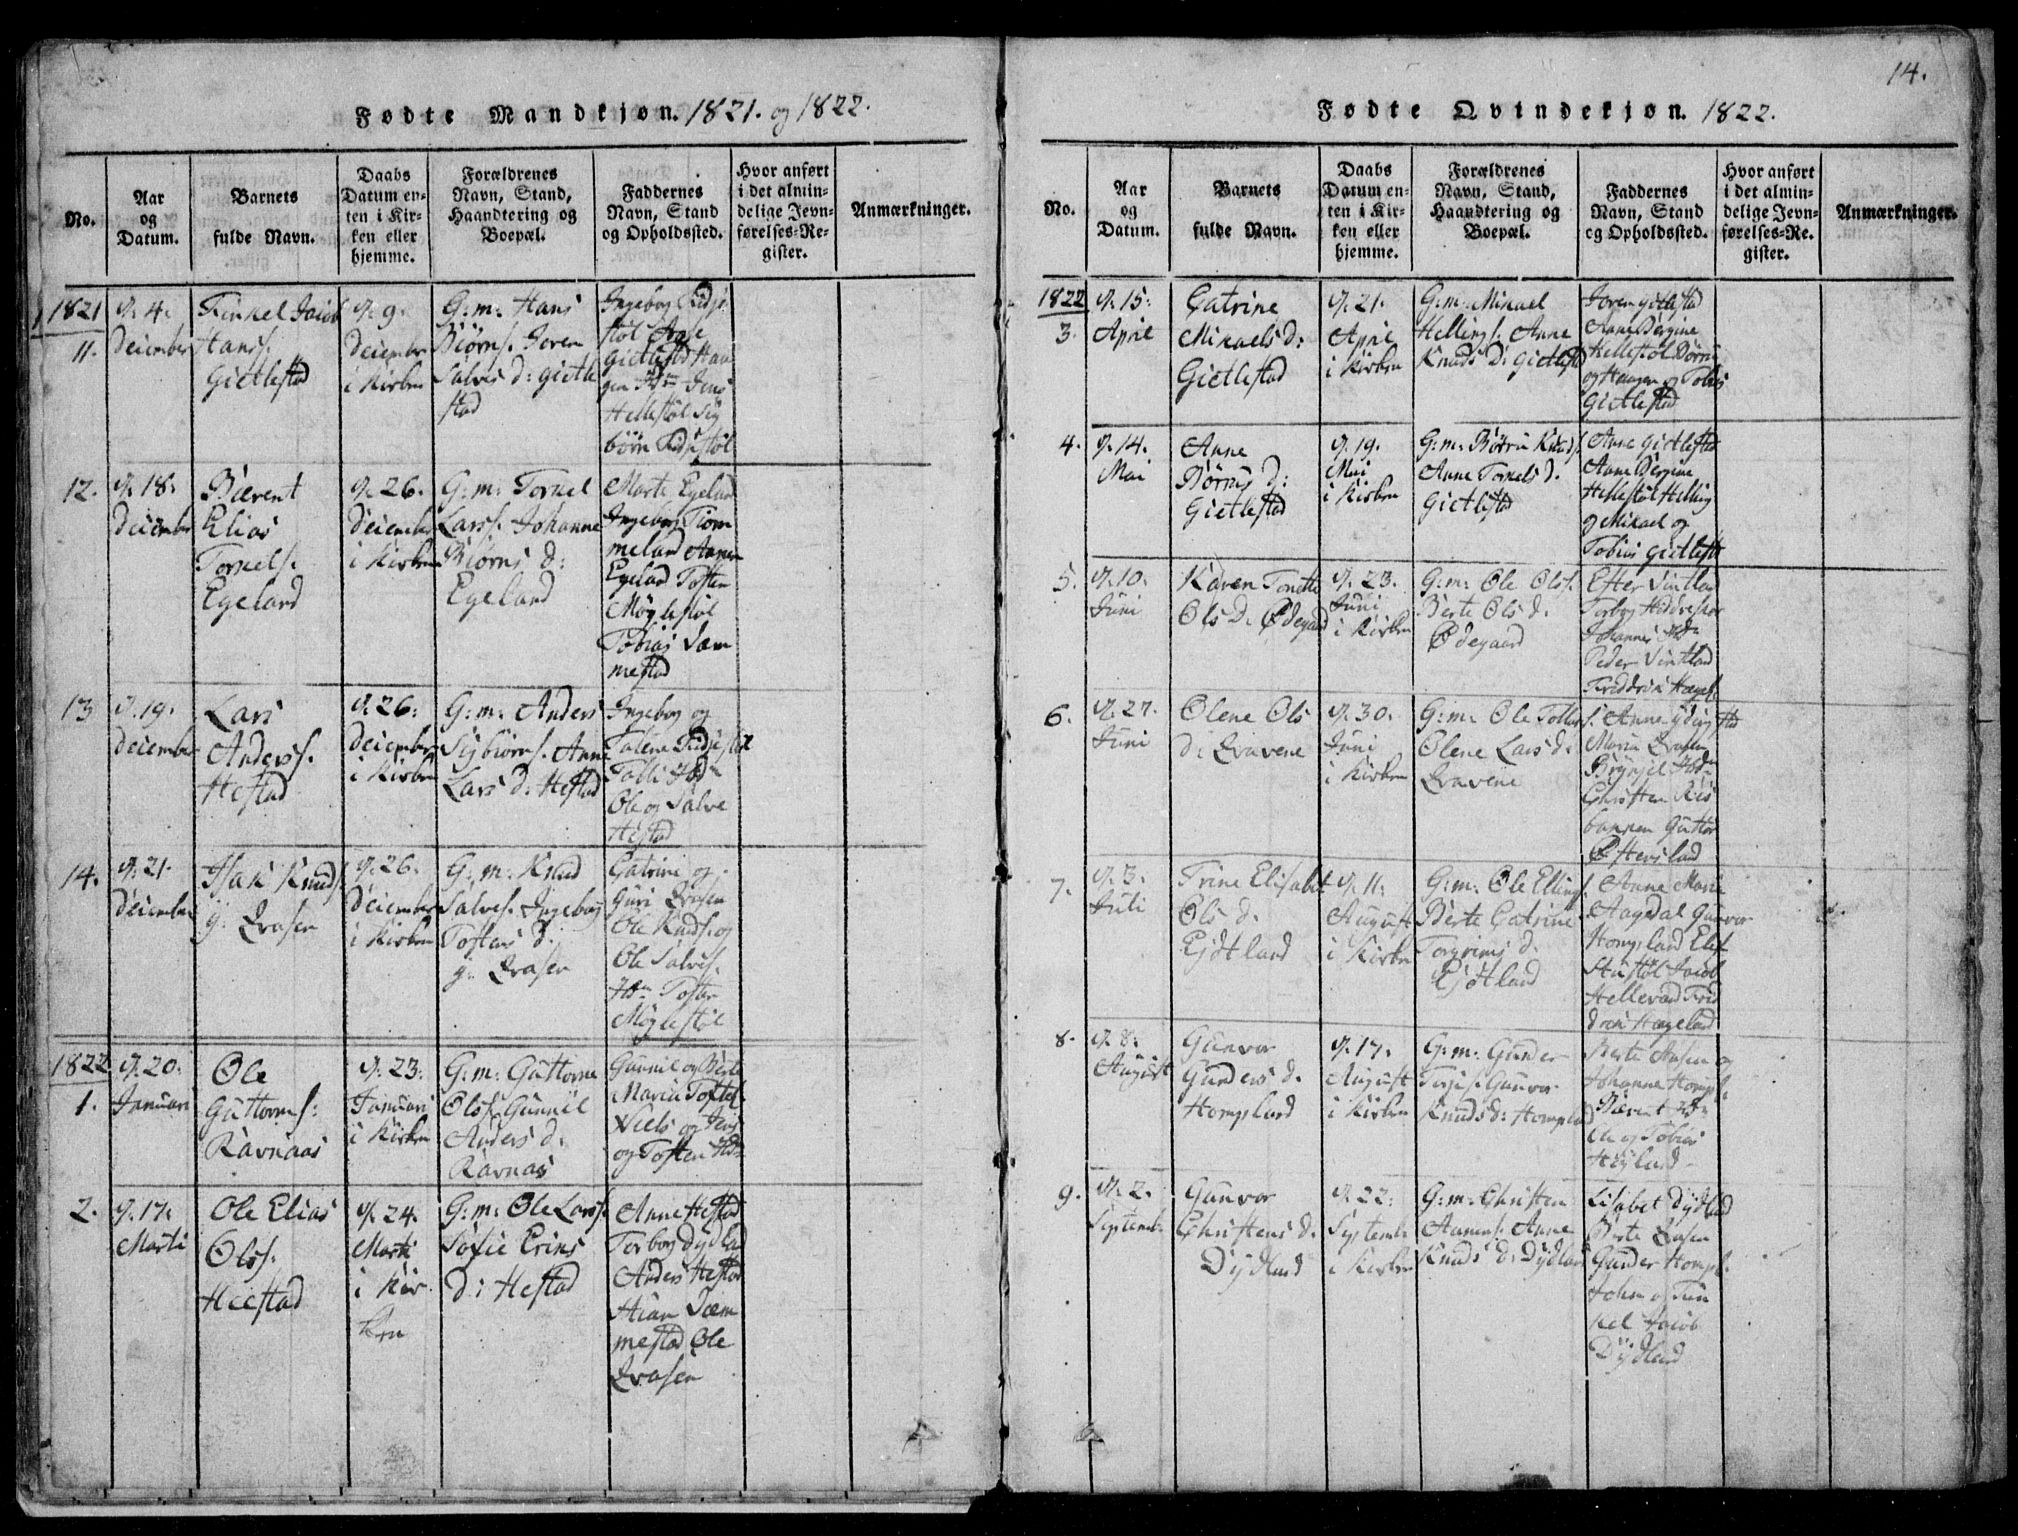 14.
Fødte Mandkjøn. 1821. og 1822.
No.
Aar
og
Datum.
Barnets
fulde Navn.
Daabs
Datum en-
ten i Kir-
ken eller
hjemme.
Forældrenes
Navn, Stand,
Haandtering og
Boepæl.
Faddernes
Navn, Stand
og Opholdssted.
Hvor anført
i det almin-
delige Jevn-
førelses-Re-
gister.
Anmærkninger.
1821
11.
d. 4.
December
Tinkel Jacob
Hanss.
Gietlestad
d. 9.
December
i Kirken
G: m: Hans
Biørns. Joren
Salves d: Gietle
stad
Ingebog
Hellestøl
12.
d. 18.
December
Bærent
Elias
Torkels.
Egeland
d. 26.
December
i Kirken
G: m: Torkel
Larss. Johanne
Biørns d:
Egeland
Marte Egeland
Ingebog Tiom
meland Aanen
Egelad Tosten
Møglestøl
Tobias Tem
mestad
13
d. 19.
December
Lars
Anderss.
Hestad
d. 26.
December
i Kirken
G: m: Anders
Sigbiørns. Anne
Lars d: Hestad
Ingebog og
Talene
Tolli
Ole og Salve
Hestad
14.
d. 21.
December
Isak Knuds.
Qvasen
d. 26.
December
i Kirken
G: m: Knud
Salves. Ingebog
Tostens d.
Qvasen
Catrine og
Guri Qvasen
Ole Knuds. og
Ole Salves.
Tosten
Møglestøl
1822
1.
d. 20.
Januari
Ole
Guttorms.
Ravnaas
d. 23.
Januari
i Kirken
G: m: Guttorm
Ols. Gunnil
Anders d.
Ravnas
Gunnil og Berte
Maria
Niels og Jens
og Tosten
2.
d. 17.
Marti
Ole Elias
Olss.
Heestad
d. 24.
Marti
i Kir
ken
G: m: Ole Larss.
Sofie Erins
d: Hestad
Anne Hestad
Torbog Dydlad
Anders Hestad
Stian Tem
mestad Ole
Qvasen
Fødte Qvindekjøn. 1822.
No.
Aar
og
Datum.
Barnets
fulde Navn.
Daabs
Datum en-
ten i Kir-
ken eller
hjemme.
Forældrenes
Navn, Stand,
Haandtering og
Boepæl.
Faddernes
Navn, Stand
og Opholdssted.
Hvor anført
i det almin-
delige Jevn-
førelses-Re-
gister.
Anmærkninger.
1822
3.
d. 15.
April
Catrine
Mikaels d:
Gietlestad
d. 21.
April
i Kirken
G: m: Mikael
Hellings. Anne
Knuds D: Gietlestd
Joren Gietlestad
Anne Bergine
Hellestøl Børni
og Haagen og Tobias
Gietlestad
4.
d. 14.
Mai
Anne
Børnis d:
Gietlestad
d. 19.
Mai
i Kirken
G: m: Børni Knuds.
Anne Torkels d.
Gietlestad
Anne Gietlestad
Anne Bergine
Hellestøl Helling
og Mikael og
Tobias Gietlestd
5.
d. 10.
Juni
Karen Tonette
Ols D. Ødegaard
d. 23.
Juni
i Kirken
G: m: Ole Olss.
Berte Ols d.
Ødegaard
Ester Vintlad
Torbog
Johannes
Peder Vintland
Friddrik
6.
d. 27.
Juni
Olene Ols
D: Qvavene
d. 30.
Juni
i Kirken
G: m: Ole Tollis
Olene Lars d.
Qvavene
s. Anne
Maria Qvasen
Brynjel
Christen Ris
bakken Guttor
Østersland
7.
d. 3.
Juli
Trine Elisabet
Ols d.
Eydtland
d. 11.
August
i Kirken
G: m: Ole Ellings.
Berte Catrine
Torgrims d.
Eydtland
Anne Marie
Aagdal Gunvor
Hompland
Jacob
Hellevad Frid
drik Hægeland
8.
d. 8.
August
Gunvor
Gunders d.
Hompland
d. 17.
August
i Kirken
G: m: Gunder
Terjes. Gunvor
Knuds d: Hompland
Berte Aasen og
Johanne Hompl.
Bærent
Ole og Tobias
Høyland
9.
d. 2.
Septemb.
Gunvor
Christens d.
Dydland
d. 22.
Septemb.
i Kirken
G: m: Christen
Aanens. Anne
Knuds D: Dydland
Lisabet Dydlad
Berte Qvasen
Gunder Hompl.
John og Tin
kel Jacob
Dydland